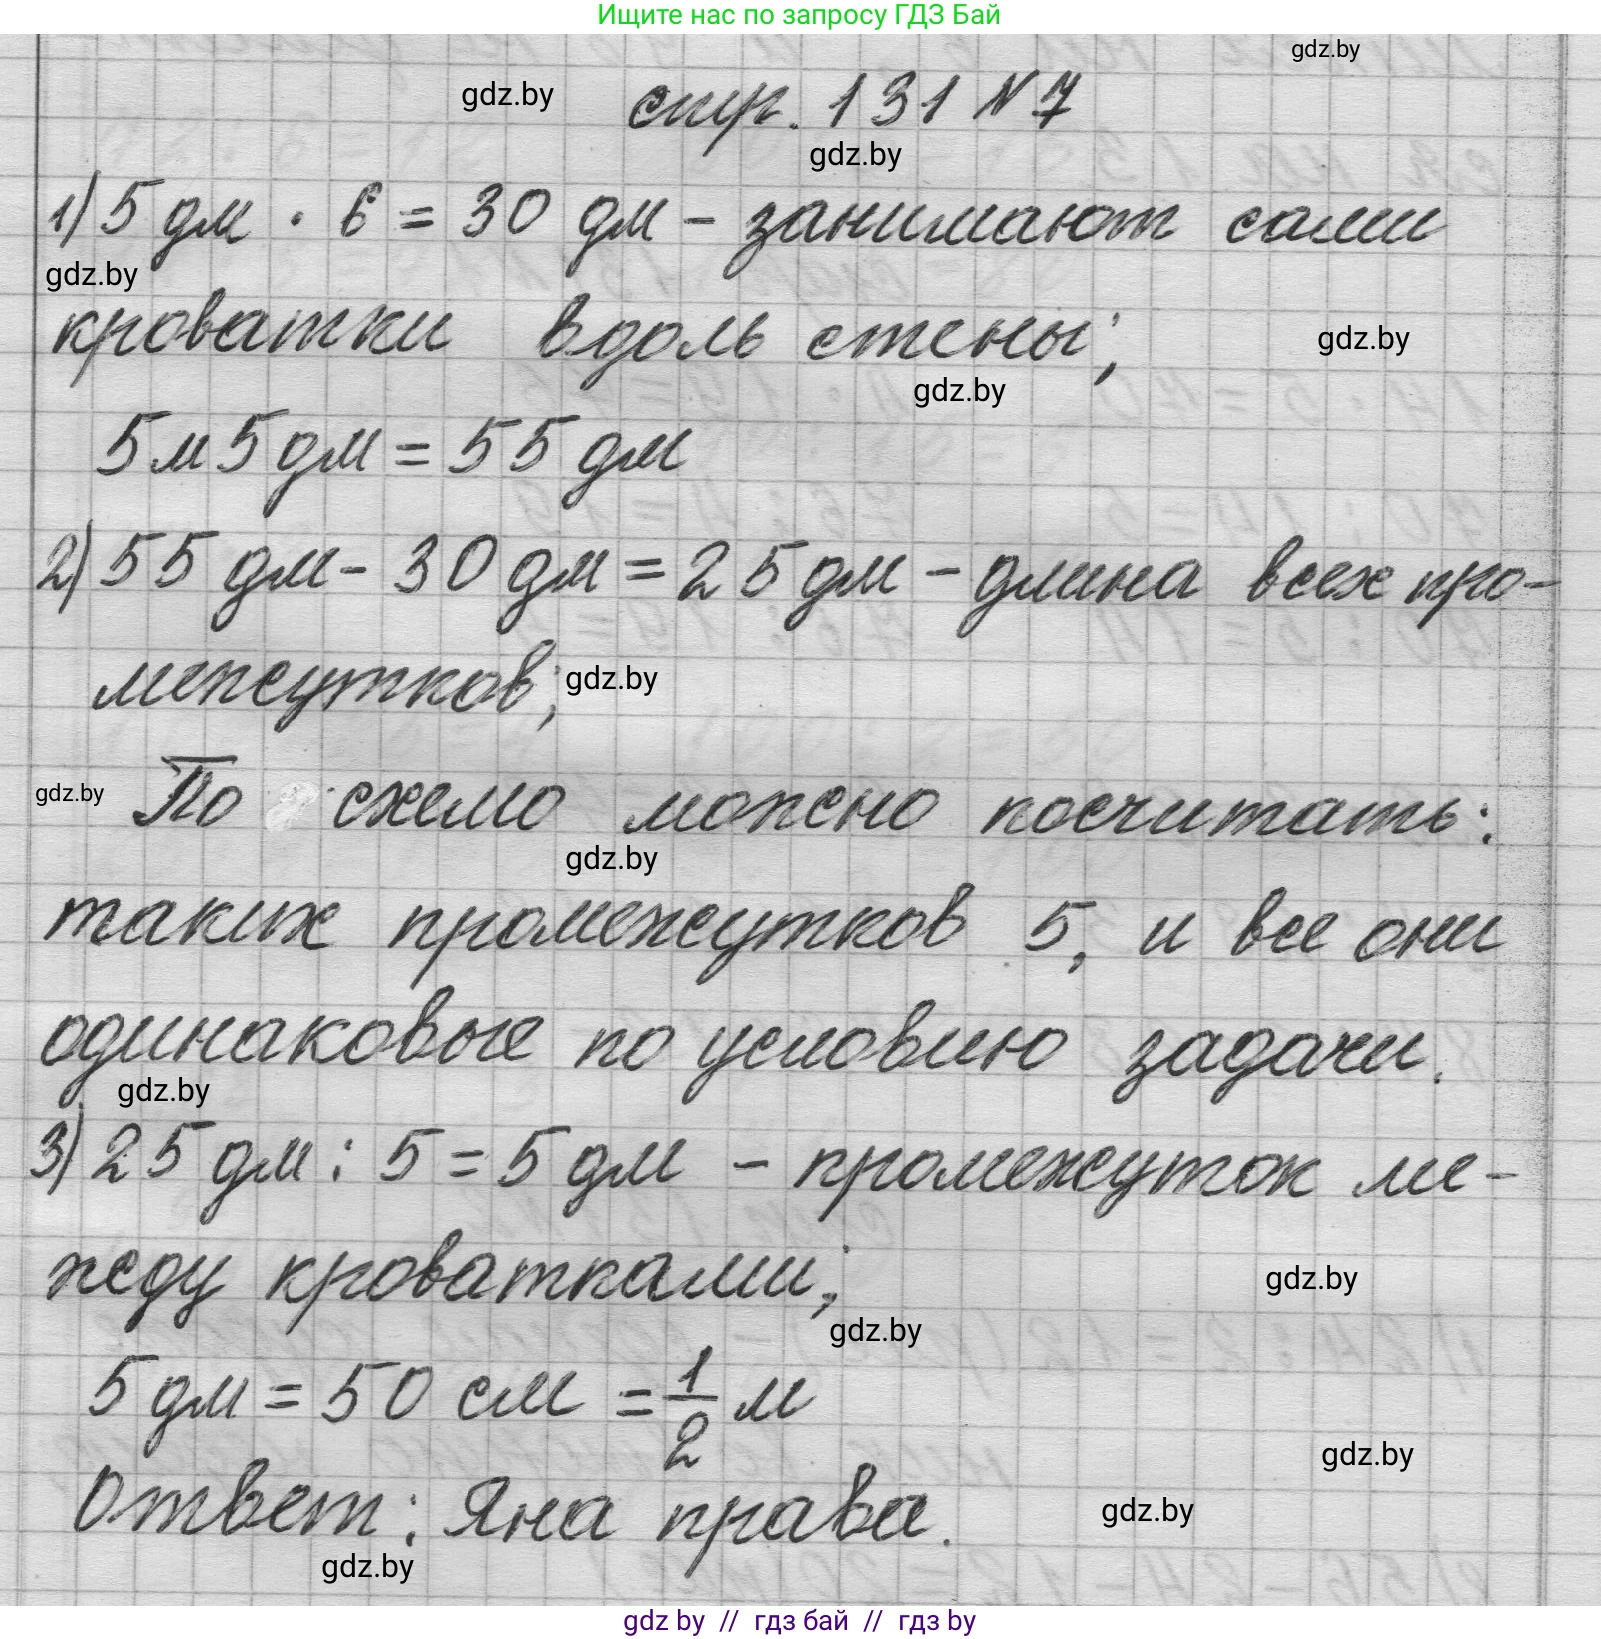 Ищите нас по запросу ГДЗ Бай
gdz.by
gdz.by стр. 131 N 7
gdz.by
1) 5 дм · 6 = 30 дм - занимают сами
gdz.by
кроватки вдоль стены;
gdz.by
gdz.by
5м 5 дм = 55 дм
2) 55 дм - 30 дм = 25 дм - длина всех про-
межутков;
gdz.by
gdz.by
По схемо можно посчитать:
gdz.by
таких промежутков 5, и все они
одинаковые по условию задачи.
gdz.by
3) 25 дм : 5 = 5 дм - промежуток ме-
жду кроватками;
gdz.by
gdz.by
5 дм = 50 см = 1/2 м
gdz.by
Ответ: Яна права.
gdz.by
gdz.by
gdz by // гдз бай // гдз by